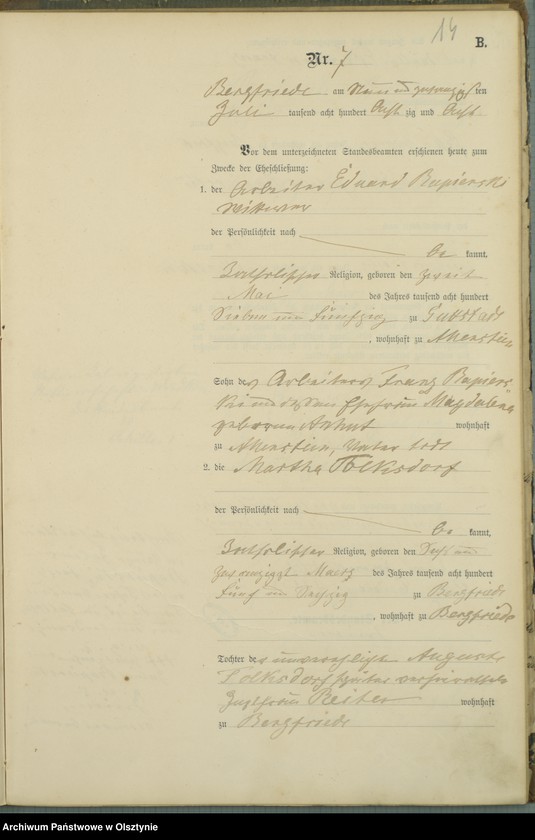 14
B.
Nr. 7
Bergfriede am Neun und zwanzigsten
Juli tausend acht hundert Acht zig und Acht
Vor dem unterzeichneten Standesbeamten erschienen heute zum
Zwecke der Eheschließung:
1. der Arbeiter Eduard Rapierski
Wittwer
der Persönlichkeit nach
be kannt,
Katholischer Religion, geboren den zweit
Mai des Jahres tausend acht hundert
Sieben und fünfzig zu Guttstadt
, wohnhaft zu Allenstein
Sohn des Arbeiters Franz Rapiers
ki und dessen Ehefrau Magdalena
geborene wohnhaft
zu Allenstein, Vater todt
2. die Martha Tolksdorf
der Persönlichkeit nach
be kannt,
Katholischer Religion, geboren den Sechs und
zwanzigst Maerz des Jahres tausend acht hundert
fünf und Sechzig zu Bergfriede
, wohnhaft zu Bergfriede
Tochter der unverehelicht Auguste
Tolksdorf später verehelicht
Reiter wohnhaft
zu Bergfriede
Archiwum Państwowe w Olsztynie